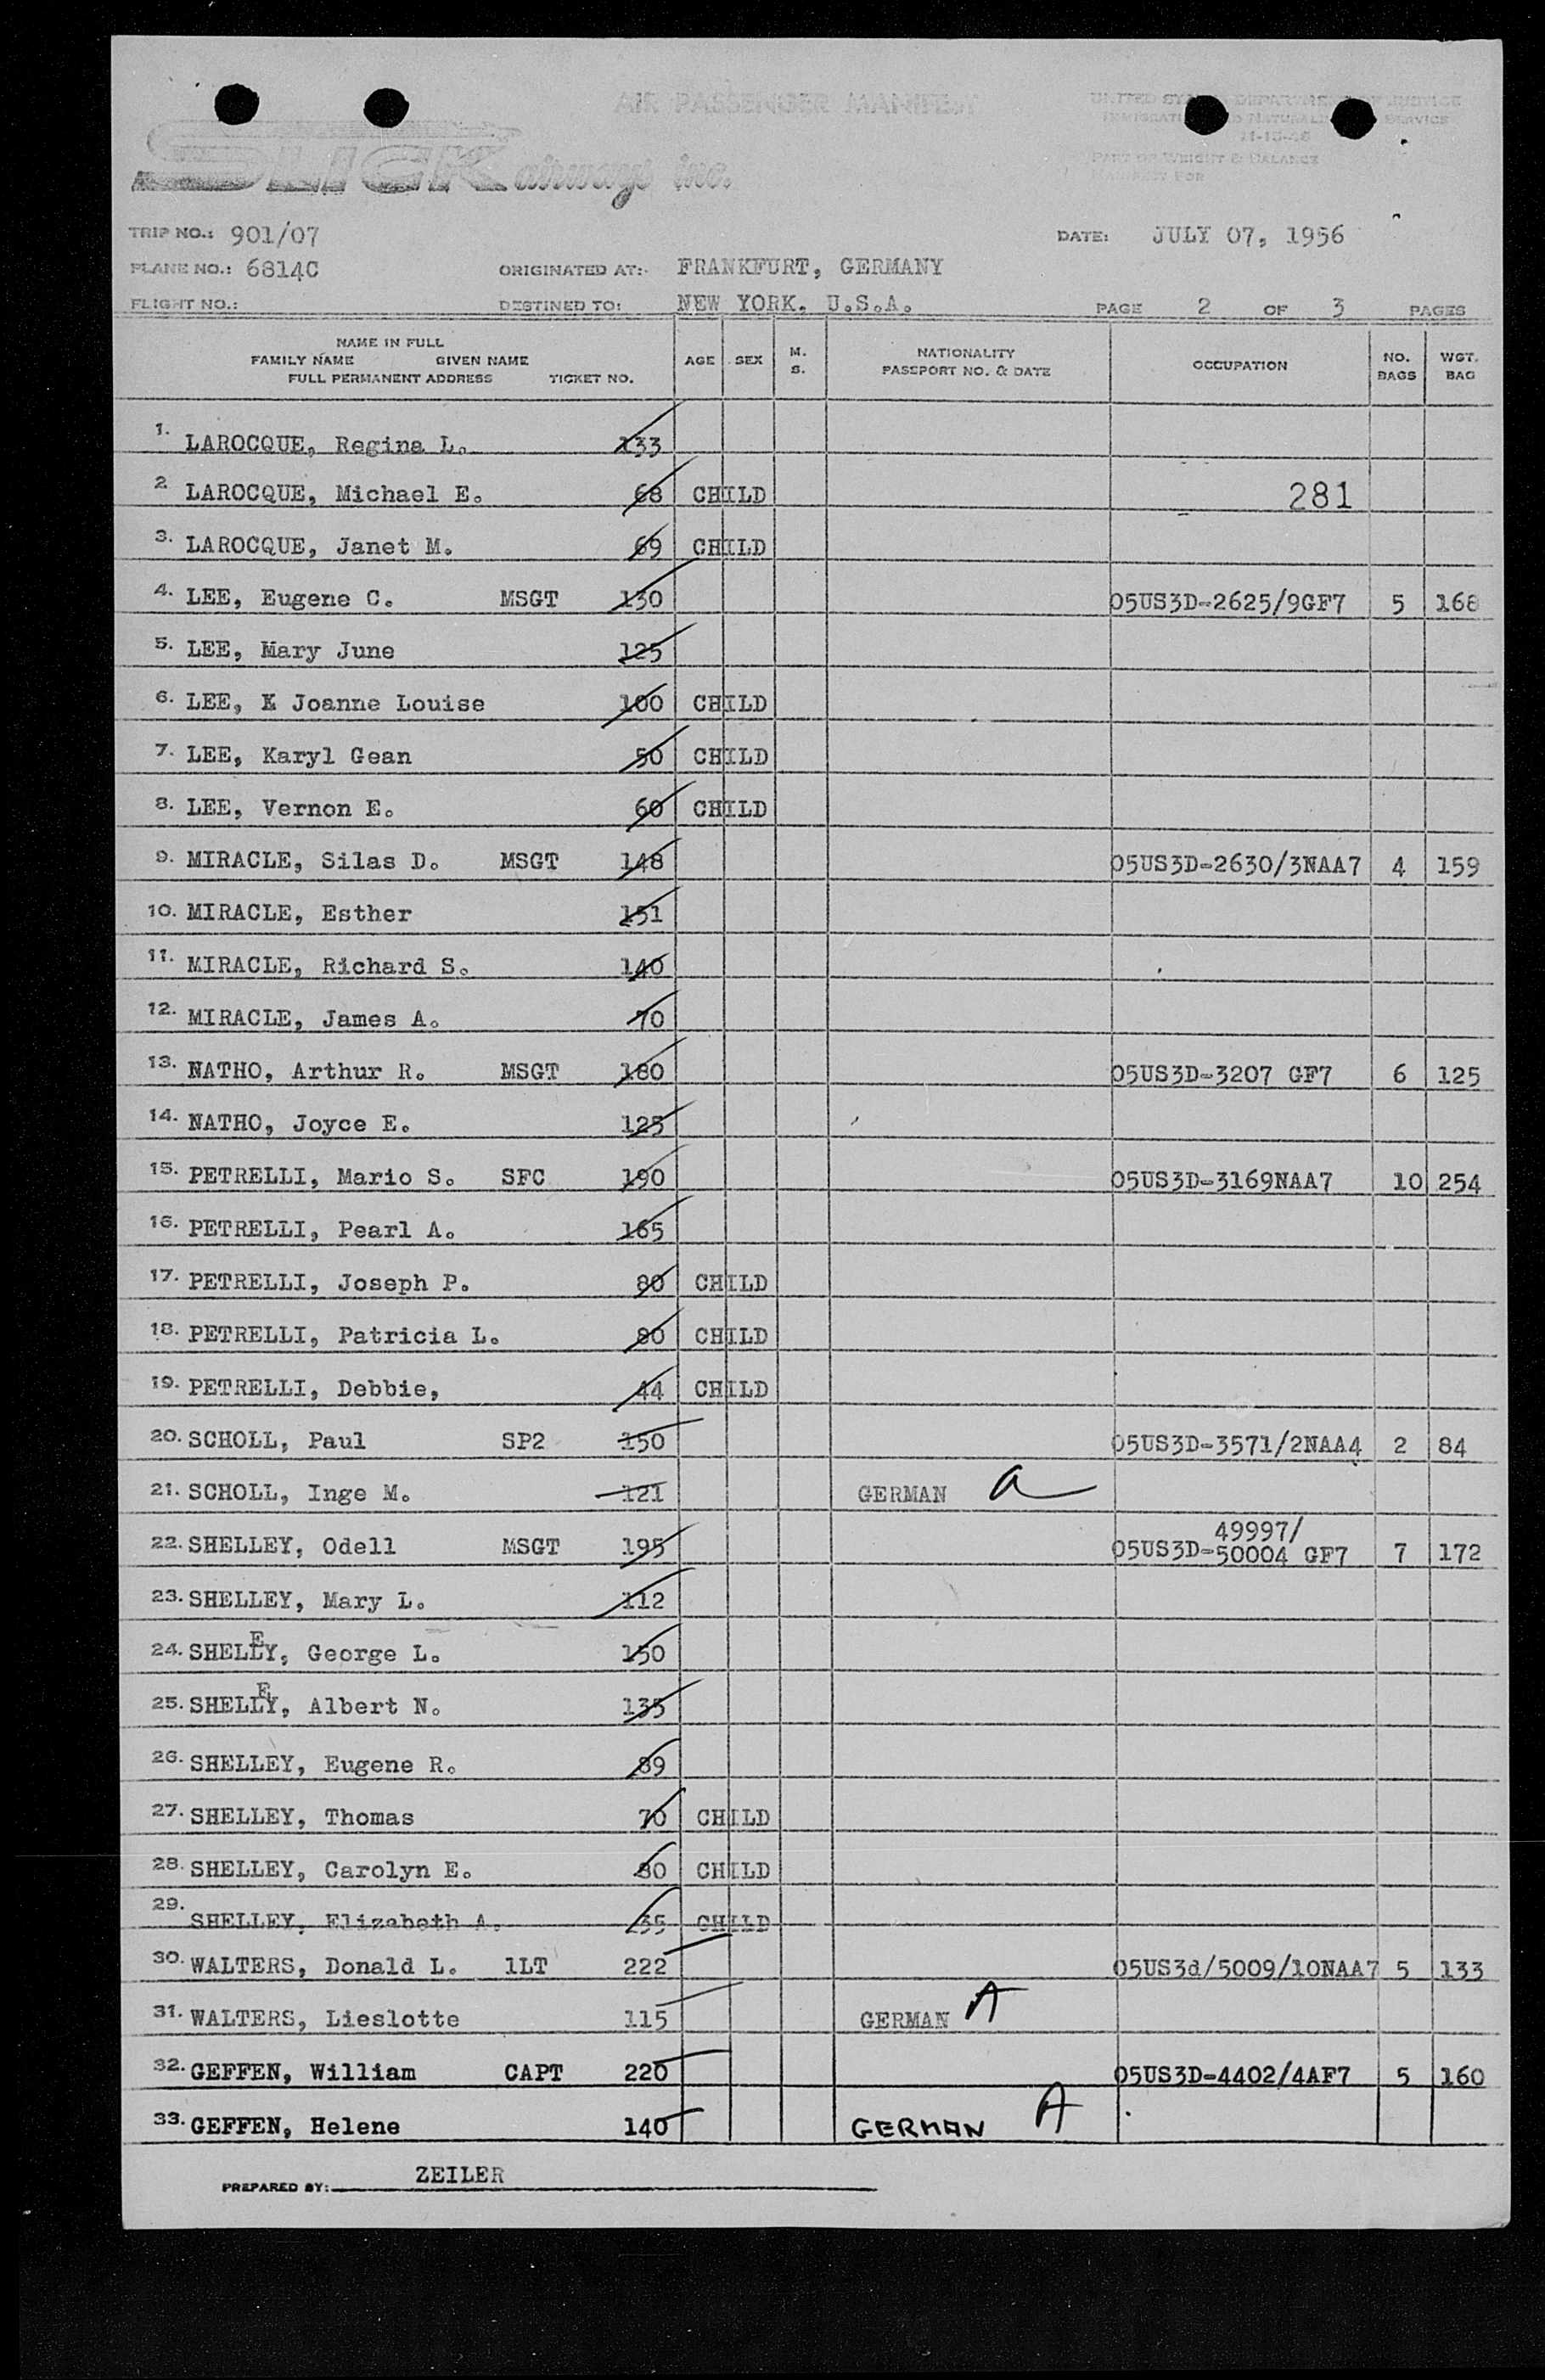 AIR PASSENGER MANIFEST
UNITED STATES DEPARTMENT OF JUSTICE
IMMIGRATION AND NATURALIZATION SERVICE
11-15-46
PART OF WEIGHT & BALANCE
MANIFEST FOR
SLICK airways inc.
TRIP NO.: 901/07 DATE: JULY 07, 1956
PLANE NO.: 6814C ORIGINATED AT: FRANKFURT, GERMANY
FLIGHT NO.: DESTINED TO: NEW YORK. U.S.A. PAGE 2 OF 3 PAGES
NAME IN FULL
FAMILY NAME GIVEN NAME
FULL PERMANENT ADDRESS TICKET NO. AGE SEX M. S. NATIONALITY PASSPORT NO. & DATE OCCUPATION NO. BAGS WGT. BAG
1. LAROCQUE, Regina L. 133
2 LAROCQUE, Michael E. 68 CHILD 281
3. LAROCQUE, Janet M. 69 CHILD
4. LEE, Eugene C. MSGT 130 05US3D-2625/9GF7 5 168
5. LEE, Mary June 125
6. LEE, K Joanne Louise 100 CHILD
7. LEE, Karyl Gean 50 CHILD
8. LEE, Vernon E. 60 CHILD
9. MIRACLE, Silas D. MSGT 148 05US3D-2630/3NAA7 4 159
10. MIRACLE, Esther 151
11. MIRACLE, Richard S. 140
12. MIRACLE, James A. 70
13. NATHO, Arthur R. MSGT 180 05US3D-3207 GF7 6 125
14. NATHO, Joyce E. 125
15. PETRELLI, Mario S. SFC 190 05US3D-3169NAA7 10 254
16. PETRELLI, Pearl A. 165
17. PETRELLI, Joseph P. 80 CHILD
18. PETRELLI, Patricia L. 80 CHILD
19. PETRELLI, Debbie, 44 CHILD
20. SCHOLL, Paul SP2 150 05US3D-3571/2NAA4 2 84
21. SCHOLL, Inge M. 121 GERMAN a
22. SHELLEY, Odell MSGT 195 05US3D-49997/50004 GF7 7 172
23. SHELLEY, Mary L. 112
24. SHELLEY, George L. 150
25. SHELLEY, Albert N. 135
26. SHELLEY, Eugene R. 89
27. SHELLEY, Thomas 70 CHILD
28. SHELLEY, Carolyn E. 80 CHILD
29. SHELLEY, Elizabeth A. 35 CHILD
30. WALTERS, Donald L. 1LT 222 05US3d/5009/10NAA7 5 133
31. WALTERS, Lieslotte 115 GERMAN A
32. GEFFEN, William CAPT 220 05US3D-4402/4AF7 5 160
33. GEFFEN, Helene 140 GERMAN A
PREPARED BY: ZEILER